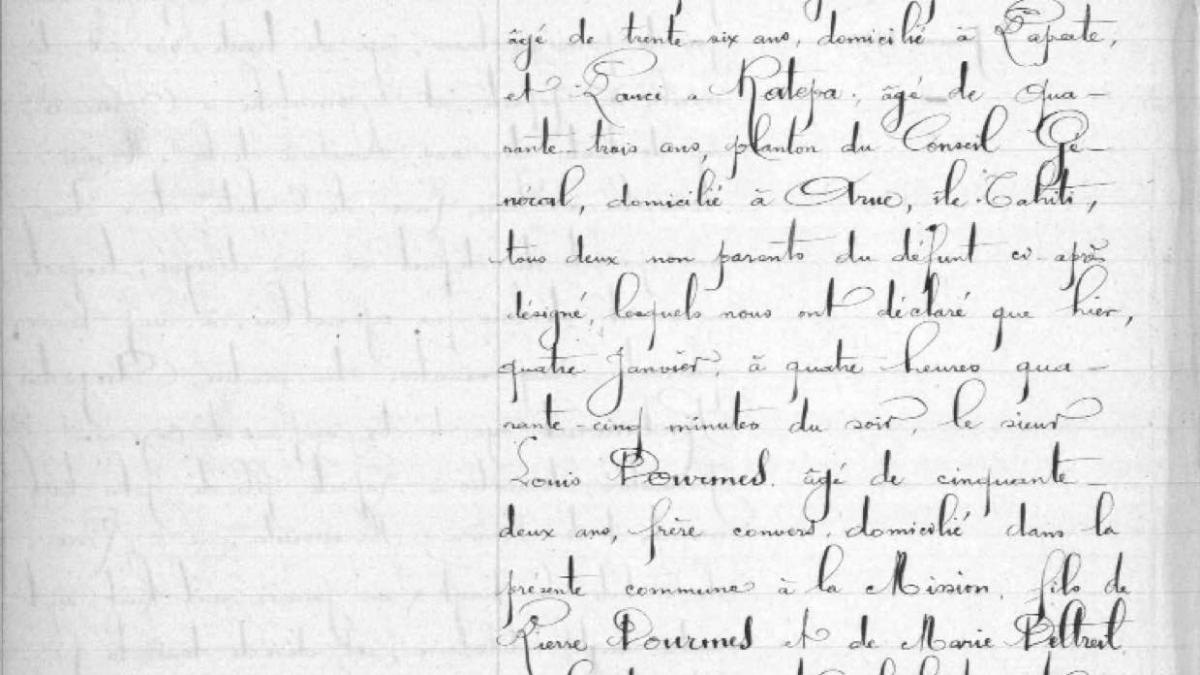 âgé de trente six ans, domicilié à Papeete,
et Rauci a Ratepa, âgé de qua-
rante trois ans, planton du Conseil Gé-
néral, domicilié à Arue, île Tahiti,
tous deux non parents du défunt ci-après
désigné, lesquels nous ont déclaré que hier,
quatre Janvier, à quatre heures qua-
rante-cinq minutes du soir, le sieur
Louis Pourmes, âgé de cinquante-
deux ans, frère convers, domicilié dans la
présente commune à la Mission, fils de
Pierre Pourmes et de Marie